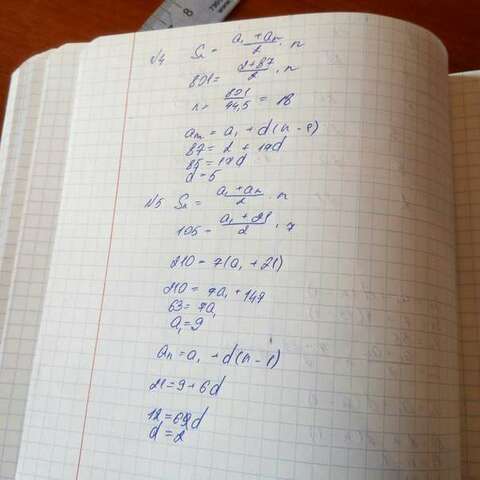 8
№4 Sn = a₁ + an / 2 · n
801 = 2+87 / 2 · n
n = 801 / 44,5 = 18
an = a₁ + d(n - 1)
87 = 2 + 17d
85 = 17d
d = 5
№5 Sn = a₁ + an / 2 · n
105 = a₁ + 21 / 2 · 7
210 = 7(a₁ + 21)
210 = 7a₁ + 147
63 = 7a₁
a₁ = 9
an = a₁ + d(n - 1)
21 = 9 + 6d
12 = 6d
d = 2